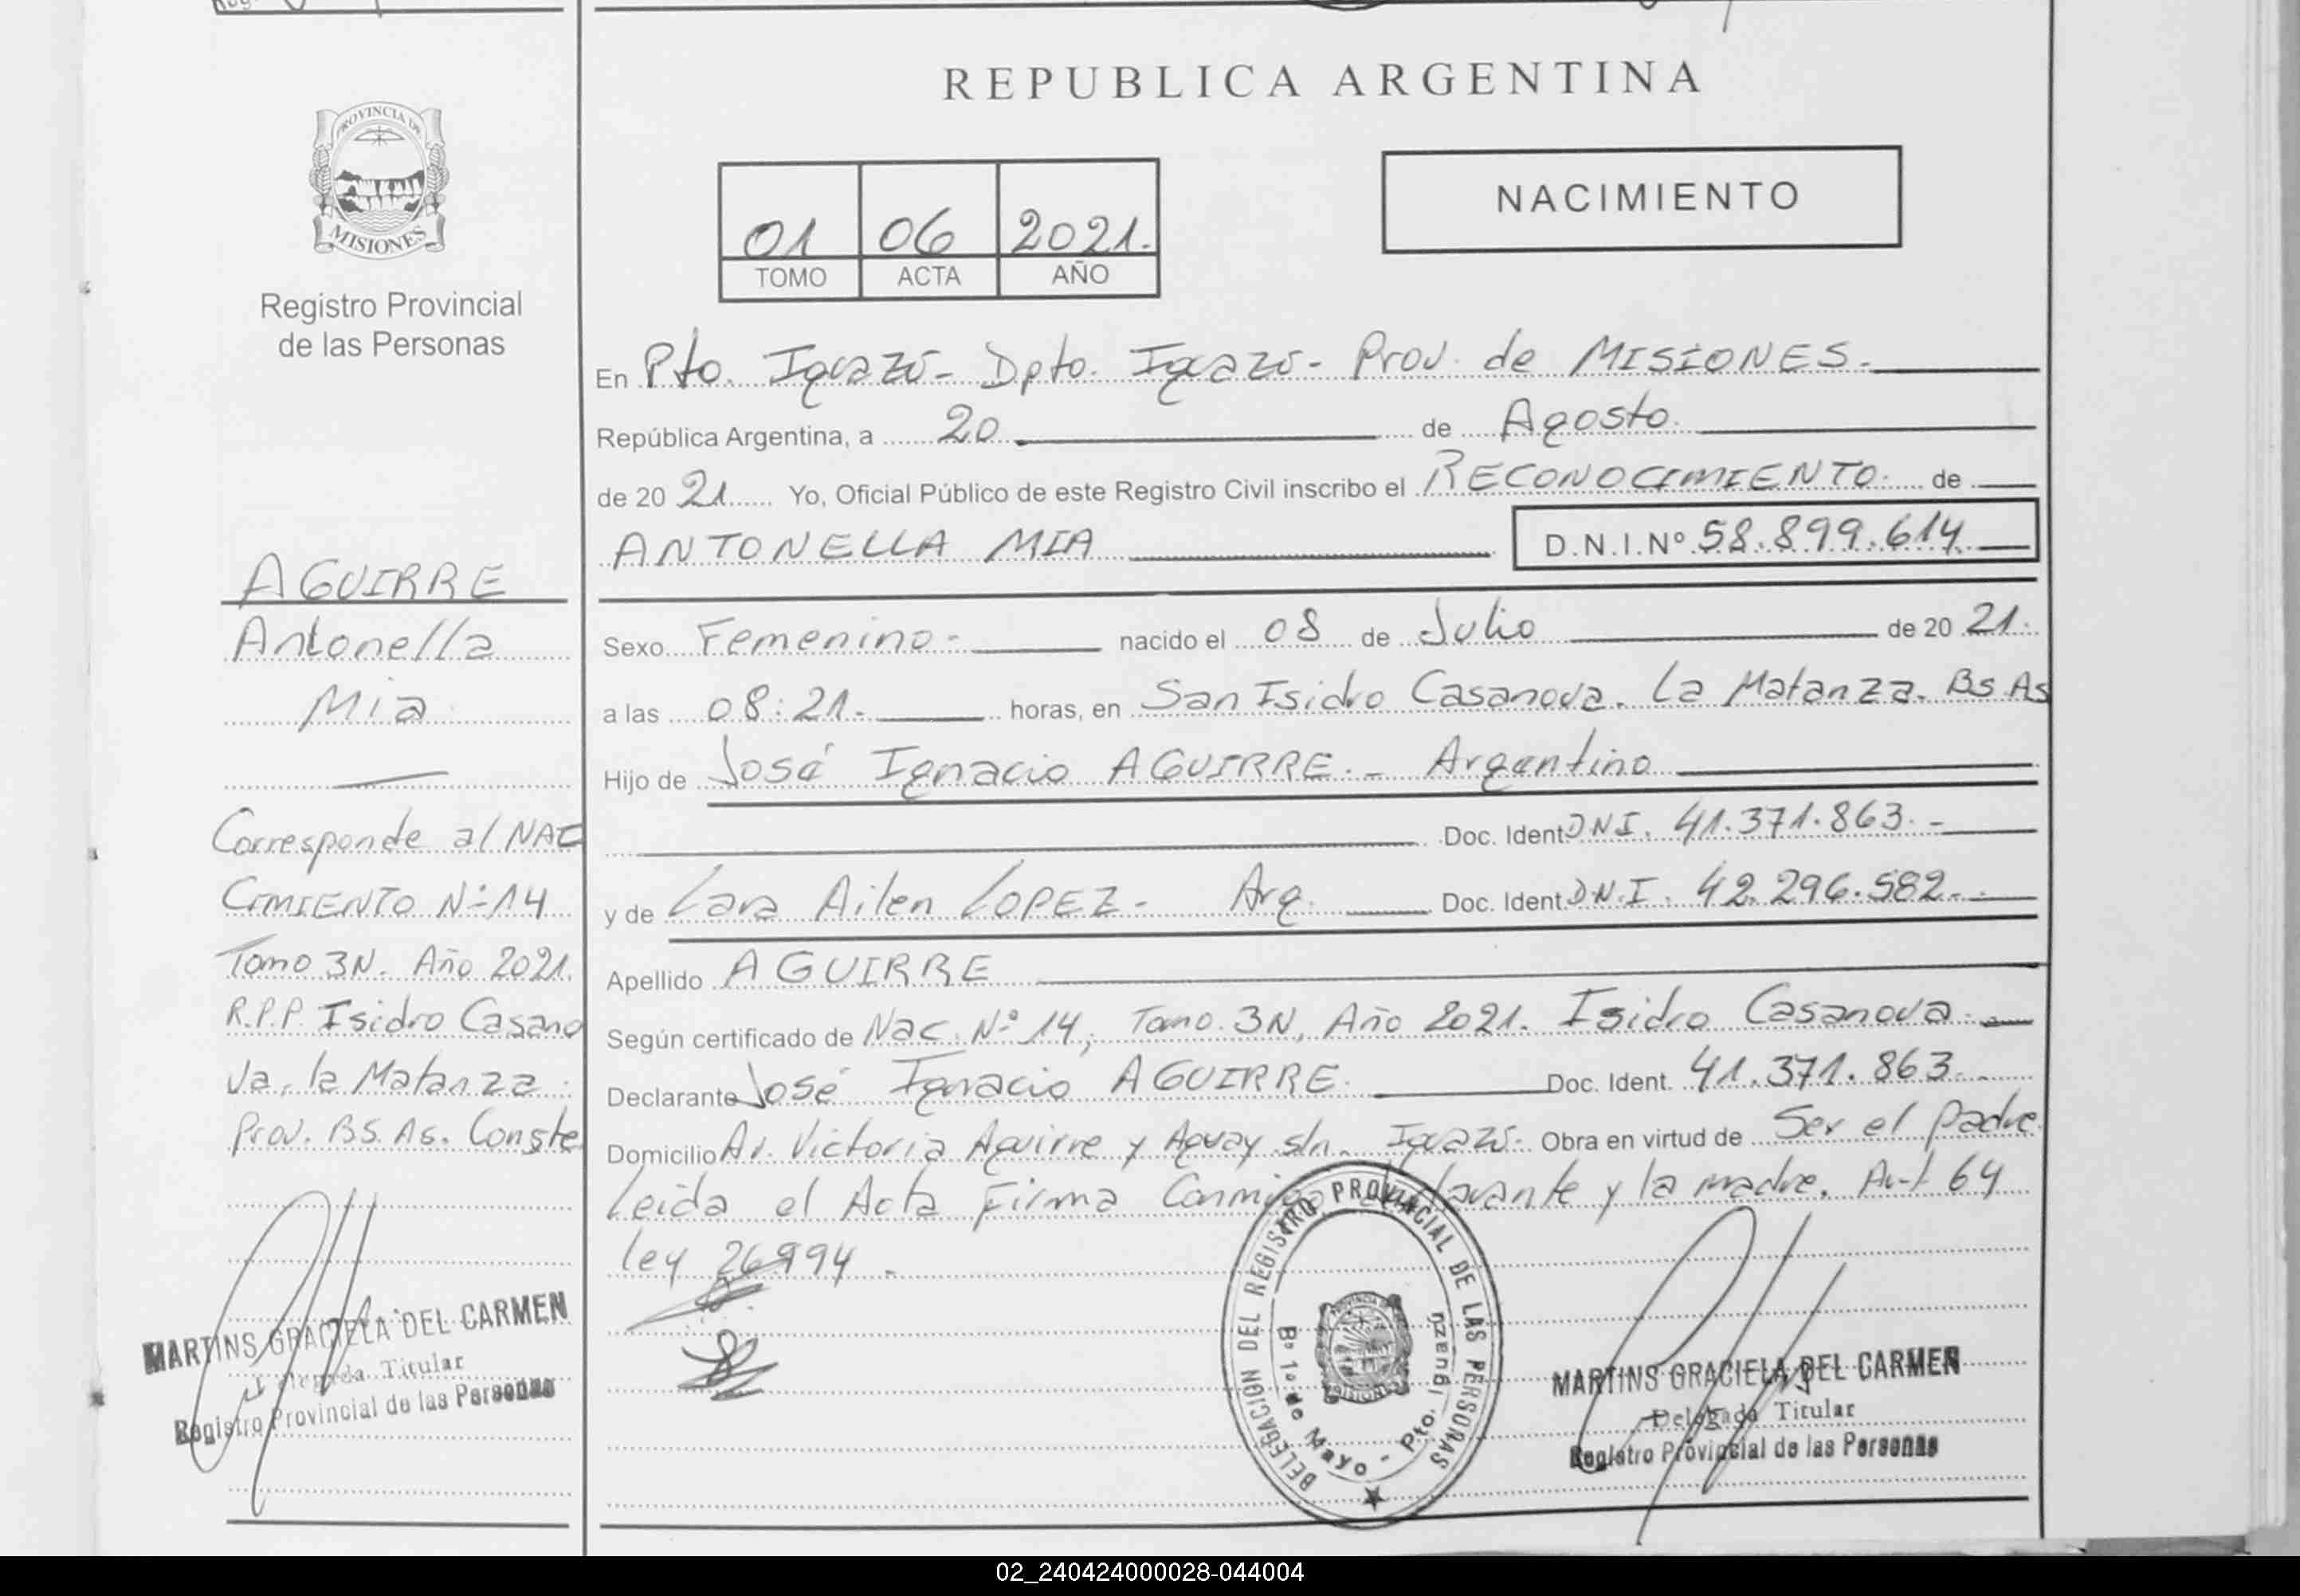 REPUBLICA ARGENTINA
PROVINCIA DE
MISIONES
Registro Provincial
de las Personas
01 06 2021.
TOMO ACTA AÑO
NACIMIENTO
En Pto. Iguazú - Dpto. Iguazú - Prov. de MISIONES.
República Argentina, a 20 de Agosto.
de 20 21 Yo, Oficial Público de este Registro Civil inscribo el RECONOCIMIENTO. de
ANTONELLA MIA D.N.I.Nº 58.899.614
Sexo Femenino. nacido el 08 de Julio de 20 21.
a las 08:21. horas, en San Isidro Casanova. La Matanza. Bs As
Hijo de José Ignacio AGUIRRE. - Argentino
Doc. Ident. DNI. 41.371.863. -
y de Lara Ailen LOPEZ - Arg. Doc. Ident. D.N.I. 42.296.582. -
Apellido AGUIRRE
Según certificado de Nac. Nº 14, Tomo 3N, Año 2021. Isidro Casanova.
Declarante José Ignacio AGUIRRE. Doc. Ident. 41.371.863.
Domicilio Av. Victoria Aguirre y Aguay s/n. Iguazú - Obra en virtud de Ser el padre.
Leida el Acta Firma Conmigo el declarante y la madre. Art 64
Ley 26994 -
AGUIRRE
Antonella
Mia
Corresponde al NAC
CIMIENTO Nº 14
Tomo 3N. Año 2021.
R.P.P. Isidro Casano
va, la Matanza.
Prov. BS. AS. Conste
MARTINS GRACIELA DEL CARMEN
Delegada Titular
Registro Provincial de las Personas
DELEGACION DEL REGISTRO PROVINCIAL DE LAS PERSONAS
Bº 1º de Mayo - Pto. Iguazu
MARTINS GRACIELA DEL CARMEN
Delegada Titular
Registro Provincial de las Personas
02_240424000028-044004